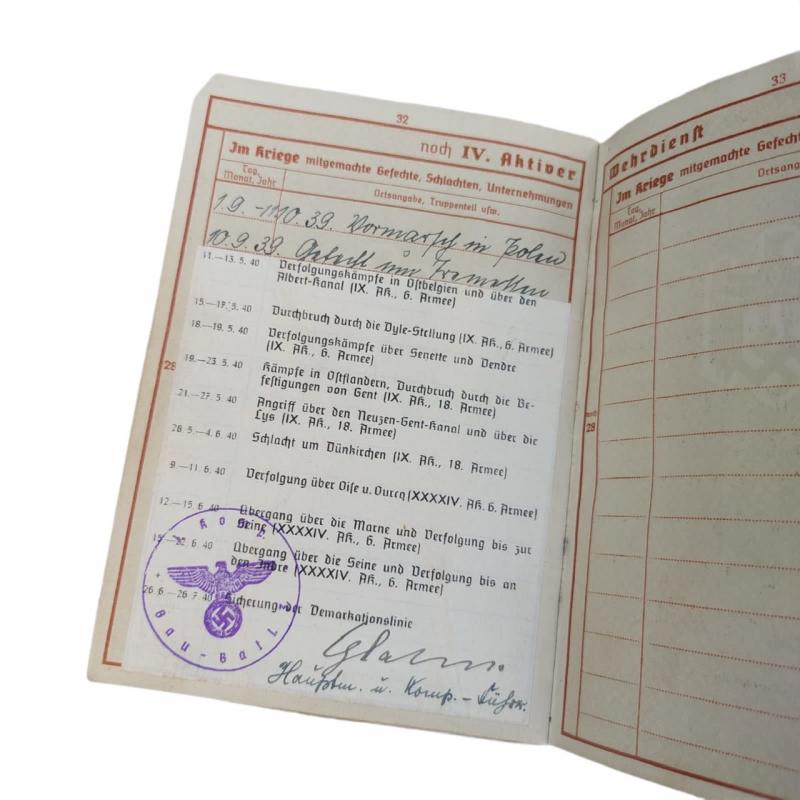 32
noch IV. Aktiver
Im Kriege mitgemachte Gefechte, Schlachten, Unternehmungen
Tag, Monat, Jahr
Ortsangabe, Truppenteil usw.
1.9. - 10. 39. Vormarsch in Polen
10.9.39. Gefecht um
11.—13.5. 40 Verfolgungskämpfe in Ostbelgien und über den
Albert-Kanal (IX. Ak., 6. Armee)
15.—17.5. 40 Durchbruch durch die Dyle-Stellung (IX. Ak., 6. Armee)
18.—19.5. 40 Verfolgungskämpfe über Senette und Dendre
(IX. Ak., 6. Armee)
19.—23.5. 40 Kämpfe in Ostflandern, Durchbruch durch die Be-
festigungen von Gent (IX. Ak., 18. Armee)
28
21.—27.5. 40 Angriff über den Neuzen-Gent-Kanal und über die
Lys (IX. Ak., 18. Armee)
28.5.—4.6. 40 Schlacht um Dünkirchen (IX. Ak., 18. Armee)
9.—11.6. 40 Verfolgung über Oise u. Ourcq (XXXXIV. Ak. 6. Armee)
12.—15.6. 40 Übergang über die Marne und Verfolgung bis zur
Seine (XXXXIV. Ak., 6. Armee)
15.—22.6. 40 Übergang über die Seine und Verfolgung bis an
den Indre (XXXXIV. Ak., 6. Armee)
26.6.—26.7. 40 Sicherung der Demarkationslinie
Hauptm. u. Komp.-Führer.
Bau-Batl.
33
Wehrdienst
Im Kriege mitgemachte Gefecht
Tag, Monat, Jahr
Ortsang
noch
28